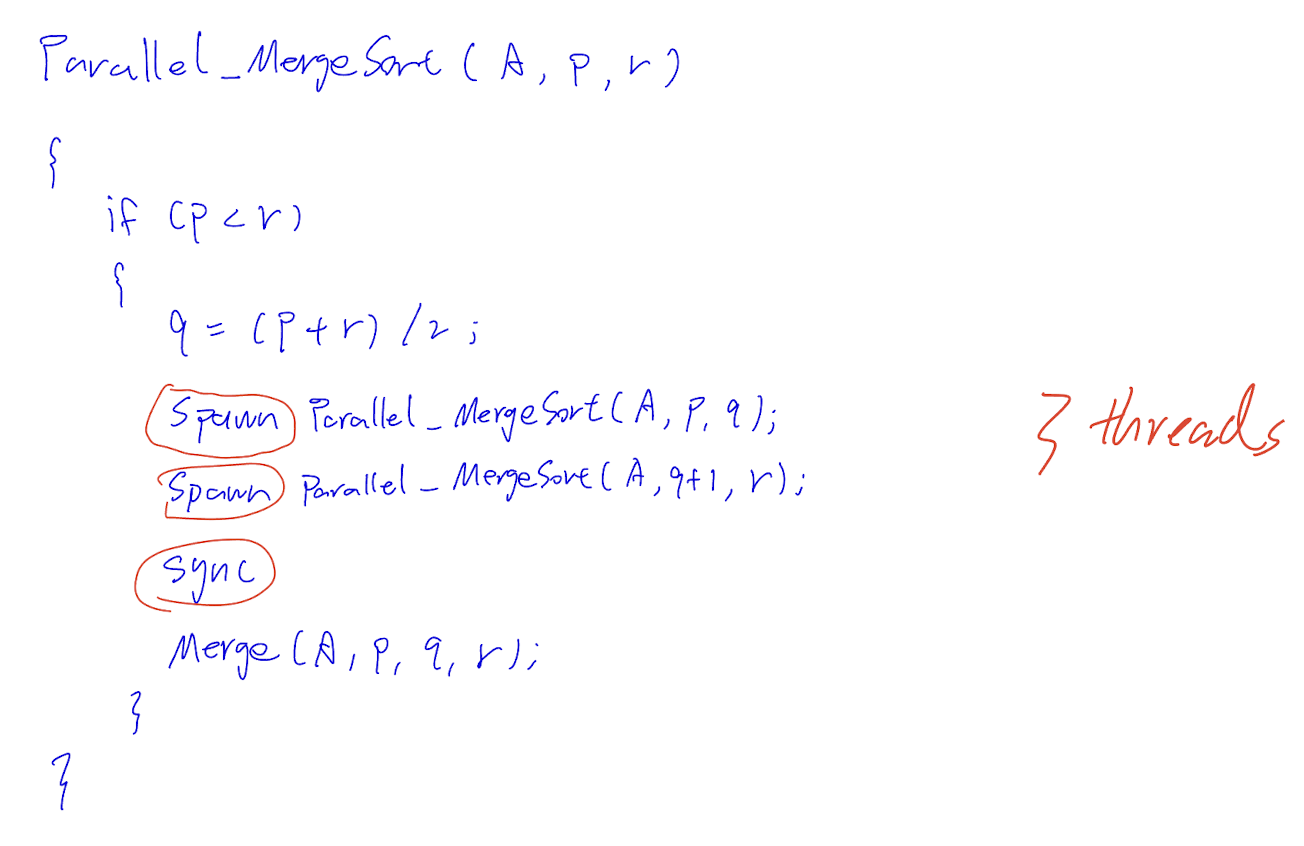 Parallel_MergeSort (A, p, r)
{
if (p < r)
{
q = (p+r) /2 ;
Spawn Parallel_MergeSort(A, p, q);
} threads
Spawn Parallel_MergeSort(A, q+1, r);
sync
Merge (A, p, q, r);
}
}